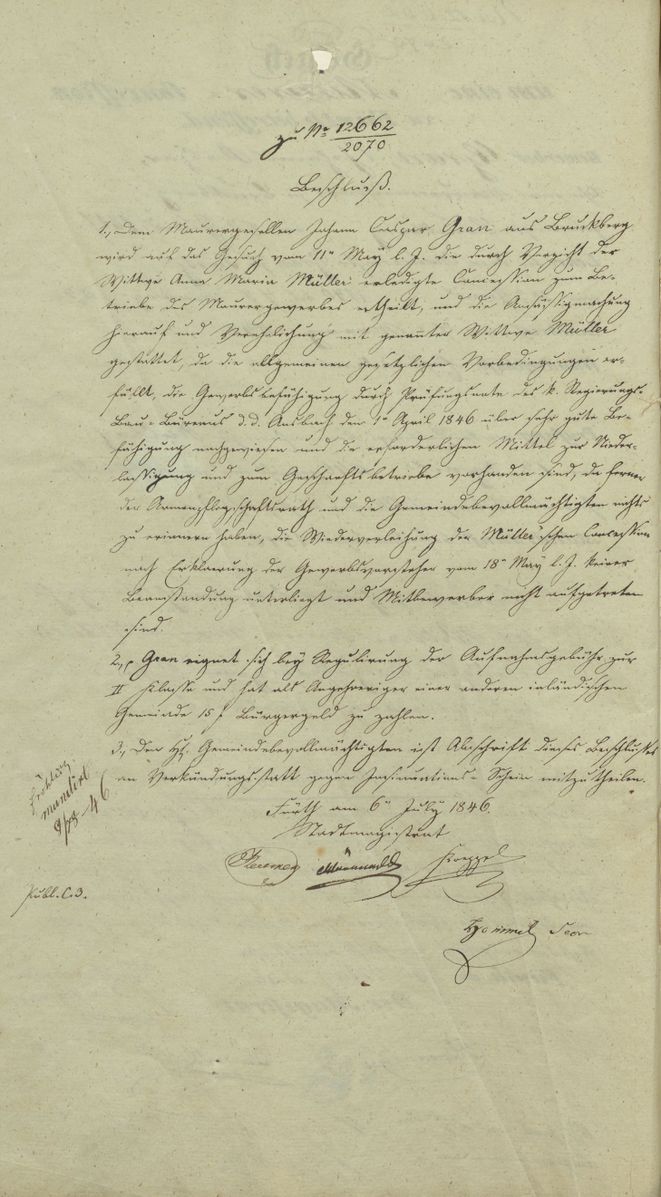 zu No 12662
2070
Beschluß.
1., Dem Maurergesellen Johann Caspar Gran aus Bruckberg
wird auf das Gesuch vom 11n May l. J. die durch Verzicht der
Wittwe Anna Maria Müller erledigte Concession zum Be-
triebe des Maurergewerbes ertheilt, und die Ansäßigmachung
hierauf und Verehelichung mit genannter Wittwe Müller
gestattet, da die allgemeinen gesetzlichen Vorbedingungen er-
füllt, die Gewerbsbefähigung durch Prüfungsnote des k. Regierungs-
Bau-Büreaus d. d. Ansbach den 1n April 1846 über sehr gute Be-
fähigung nachgewiesen und die erforderlichen Mittel zur Nieder-
lassigung und zum Geschaeftsbetriebe vorhanden sind, da ferner
der Armenpflegschaftsrath und die Gemeindebevollmächtigten nichts
zu erinnern haben, die Wiederverleihung der Müller'schen Concession
nach Erklaerung der Gewerbsvorsteher vom 18n May l. J. keiner
Beanstandung unterliegt und Mitbewerber nicht aufgetreten
sind.
2., Gran eignet sich bey Regulirung der Aufnahmsgebühr zur
II Klasse und hat als Angehoeriger einer anderen inländischen
Gemeinde 15 f Bürgergeld zu zahlen.
3., Den H. Gemeindebevollmächtigten ist Abschrift dieses Beschlußes
an Verkündungsstatt gegen Insinuations-Schein mitzutheilen.
Fürth am 6n July 1846
Stadtmagistrat
Koeppel
Hommel Secr
mundirt
46
Publ. C. 3.